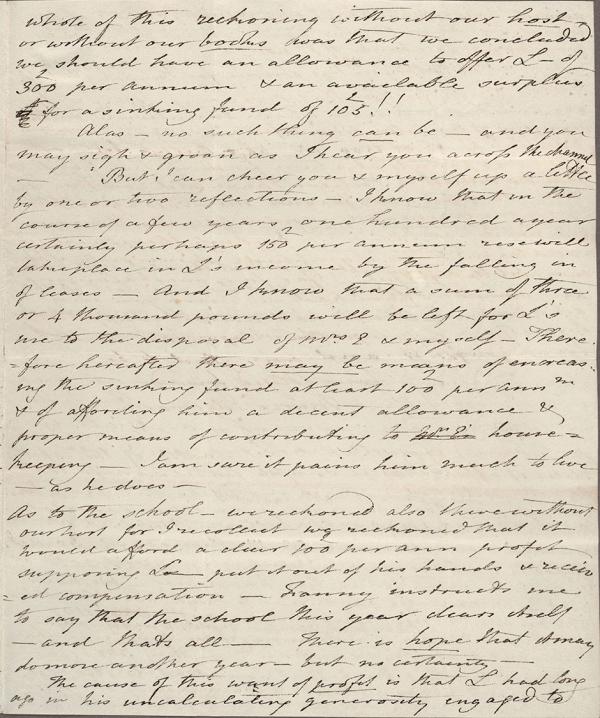 whole of this reckoning without our host
or without our books was that we concluded
we should have an allowance to offer L— of
300£ per annum & an available surplus
for a sinking fund of 105£!!
Alas — no such thing can be — and you
may sigh & groan as I hear you across the channel
— But I can cheer you & myself up a little
by one or two reflections — I know that in the
course of a few years one hundred a year
certainly perhaps 150£ per annum rise will
take place in L's income by the falling in
of leases — And I know that a sum of three
or 4 thousand pounds will be left for L's
use to the disposal of Mrs E & myself — There
=fore hereafter there may be means of encreas=
ing the sinking fund at least 100£ per annm
& of affording him a decent allowance &
proper means of contributing to house=
keeping — I am sure it pains him much to live
— as he does —
As to the school — we reckoned also there without
our host for I recollect we reckoned that it
would afford a clear 100£ per ann profit
supposing L— put it out of his hands & receiv
=ed compensation — Franny instructs me
to say that the school this year clears itself
— and thats all — There is hope that it may
do more another year — but no certainty —
The cause of this want of profit is that L had long
ago in his uncalculating generosity engaged to